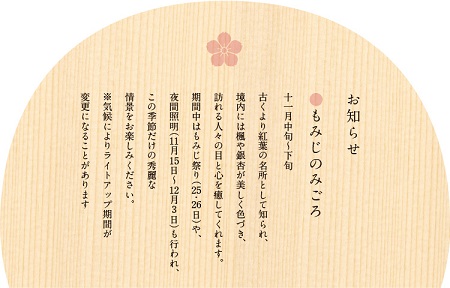 お知らせ
●もみじのみごろ
十一月中旬〜下旬
古くより紅葉の名所として知られ、
境内には楓や銀杏が美しく色づき、
訪れる人々の目と心を癒してくれます。
期間中はもみじ祭り(25・26日)や、
夜間照明(11月15日〜12月3日)も行われ、
この季節だけの秀麗な
情景をお楽しみください。
※気候によりライトアップ期間が
変更になることがあります